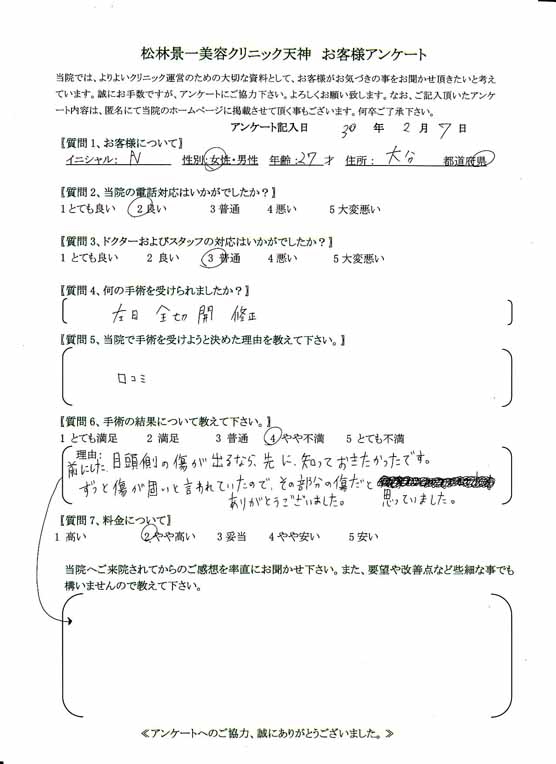 松林景一美容クリニック天神　お客様アンケート
当院では、よりよいクリニック運営のための大切な資料として、お客様がお気づきの事をお聞かせ頂きたいと考え
ています。誠にお手数ですが、アンケートにご協力下さい。よろしくお願い致します。なお、ご記入頂いたアンケ
ート内容は、匿名にて当院のホームページに掲載させて頂く事もございます。何卒ご了承下さい。
アンケート記入日　30　年　2　月　7　日
【質問1、お客様について】
イニシャル：　N　性別：女性・男性　年齢：27才　住所：　大分　都道府県
【質問2、当院の電話対応はいかがでしたか？】
1とても良い　2良い　3普通　4悪い　5大変悪い
【質問3、ドクターおよびスタッフの対応はいかがでしたか？】
1 とても良い　2 良い　3 普通　4悪い　5大変悪い
【質問4、何の手術を受けられましたか？】
左目　全切開　修正
【質問5、当院で手術を受けようと決めた理由を教えて下さい。】
口コミ
【質問6、手術の結果について教えて下さい。】
1 とても満足　2 満足　3 普通　4やや不満　5 とても不満
理由：
前にした、目頭側の傷が出るなら、先に、知っておきたかったです。
ずっと傷が固いと言われていたので、その部分の傷だと思っていました。
ありがとうございました。
【質問7、料金について】
1 高い　2やや高い　3妥当　4やや安い　5安い
当院へご来院されてからのご感想を率直にお聞かせ下さい。また、要望や改善点など些細な事でも
構いませんので教えて下さい。
≪アンケートへのご協力、誠にありがとうございました。≫